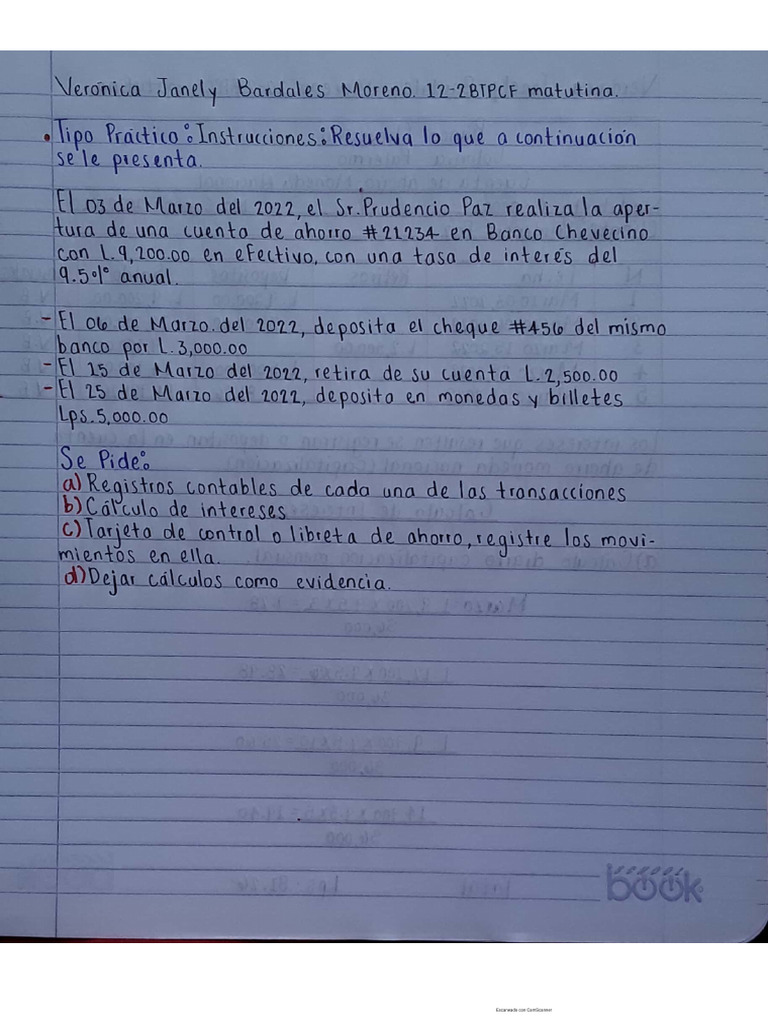 Verónica Janely Bardales Moreno. 12-2BTPCF matutina.
• Tipo Práctico: Instrucciones: Resuelva lo que a continuación
se le presenta.
El 03 de Marzo del 2022, el Sr. Prudencio Paz realiza la aper-
tura de una cuenta de ahorro #21234 en Banco Chevecino
con L.9,200.00 en efectivo, con una tasa de interés del
9.5% anual.
- El 06 de Marzo del 2022, deposita el cheque #456 del mismo
banco por L.3,000.00
- El 15 de Marzo del 2022, retira de su cuenta L.2,500.00
- El 25 de Marzo del 2022, deposito en monedas y billetes
Lps.5,000.00
Se Pide:
a) Registros contables de cada una de las transacciones
b) Cálculo de intereses
c) Tarjeta de control o libreta de ahorro, registre los movi-
mientos en ella.
d) Dejar cálculos como evidencia.
book
Escaneado con CamScanner